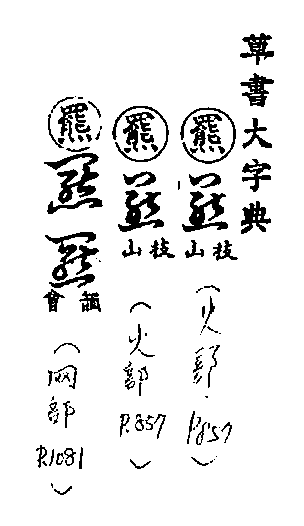 草書大字典
羆
枝山
(火部.P.857)
羆
枝山
(火部P.857)
羆
韻會
(网部P.1081)